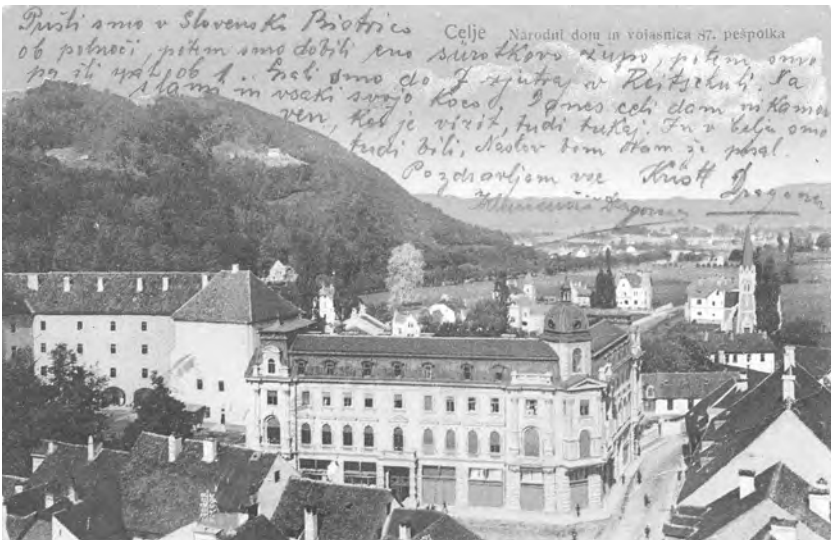 Celje Národni dom in vojašnica 87. pešpolka
Prišli smo v Slovenska Bistrico
ob polnoči, potem smo dobili eno župo, potem smo
pa šli spat ob 1. Spali smo do 7 zjutraj v Reitschuli. Na
slami in vsaki svojo koco. Danes celi dan nikamor
ven, ker je vizit, tudi tukaj. In v Celju smo
tudi bili, Naslov bom vam že pisal.
Pozdravljam vse Dragomir